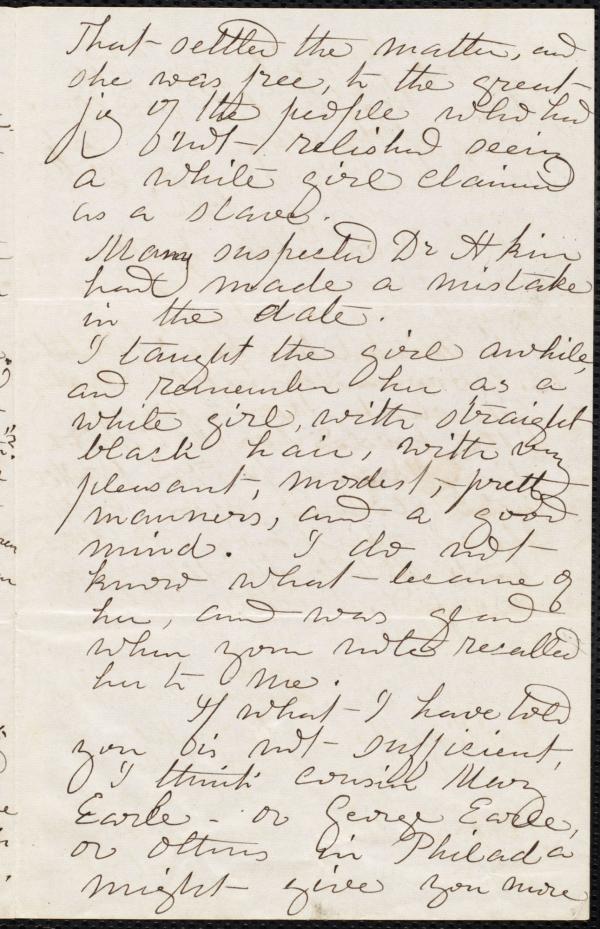 That settled the matter, and
she was free, to the great
joy of the people who had
not relished seeing
a white girl claimed
as a slave.
Many suspected Dr
had made a mistake
in the date.
I taught the girl awhile,
and remember her as a
white girl, with straight
black hair, with very
pleasant, modest, pretty
manners, and a good
mind. I do not
know what became of
her, and was glad
when your note recalled
her to me.
If what I have told
you is not sufficient,
I think cousin Mary
Earle - or George Earle,
or others in Philada
might give you more